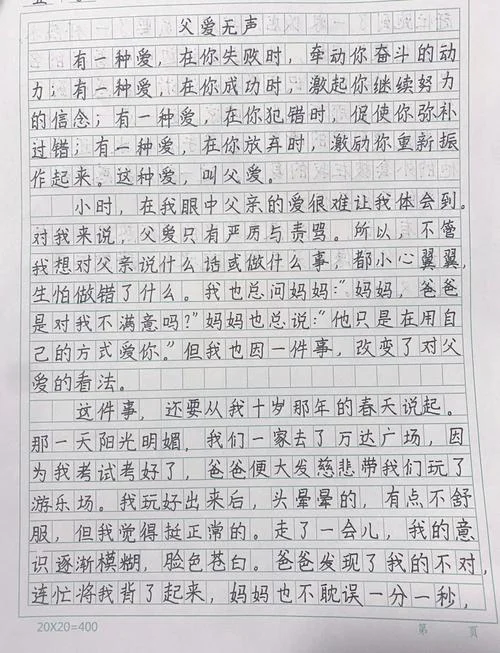 父爱无声
有一种爱，在你失败时，牵动你奋斗的动
力；有一种爱，在你成功时，激起你继续努力
的信念；有一种爱，在你犯错时，促使你弥补
过错；有一种爱，在你放弃时，激励你重新振
作起来。这种爱，叫父爱。
小时，在我眼中父亲的爱很难让我体会到。
对我来说，父爱只有严厉与责骂。所以，不管
我想对父亲说什么话或做什么事，都小心翼翼，
生怕做错了什么。我也总问妈妈：“妈妈，爸爸
是对我不满意吗？”妈妈也总说：“他只是在用自
己的方式爱你。”但我也因一件事，改变了对父
爱的看法。
这件事，还要从我十岁那年的春天说起。
那一天阳光明媚，我们一家去了万达广场，因
为我考试考好了，爸爸便大发慈悲带我们玩了
游乐场。我玩好出来后，头晕晕的，有点不舒
服，但我觉得挺正常的。走了一会儿，我的意
识逐渐模糊，脸色苍白。爸爸发现了我的不对，
连忙将我背了起来，妈妈也不耽误一分一秒，
20X20=400 第 页